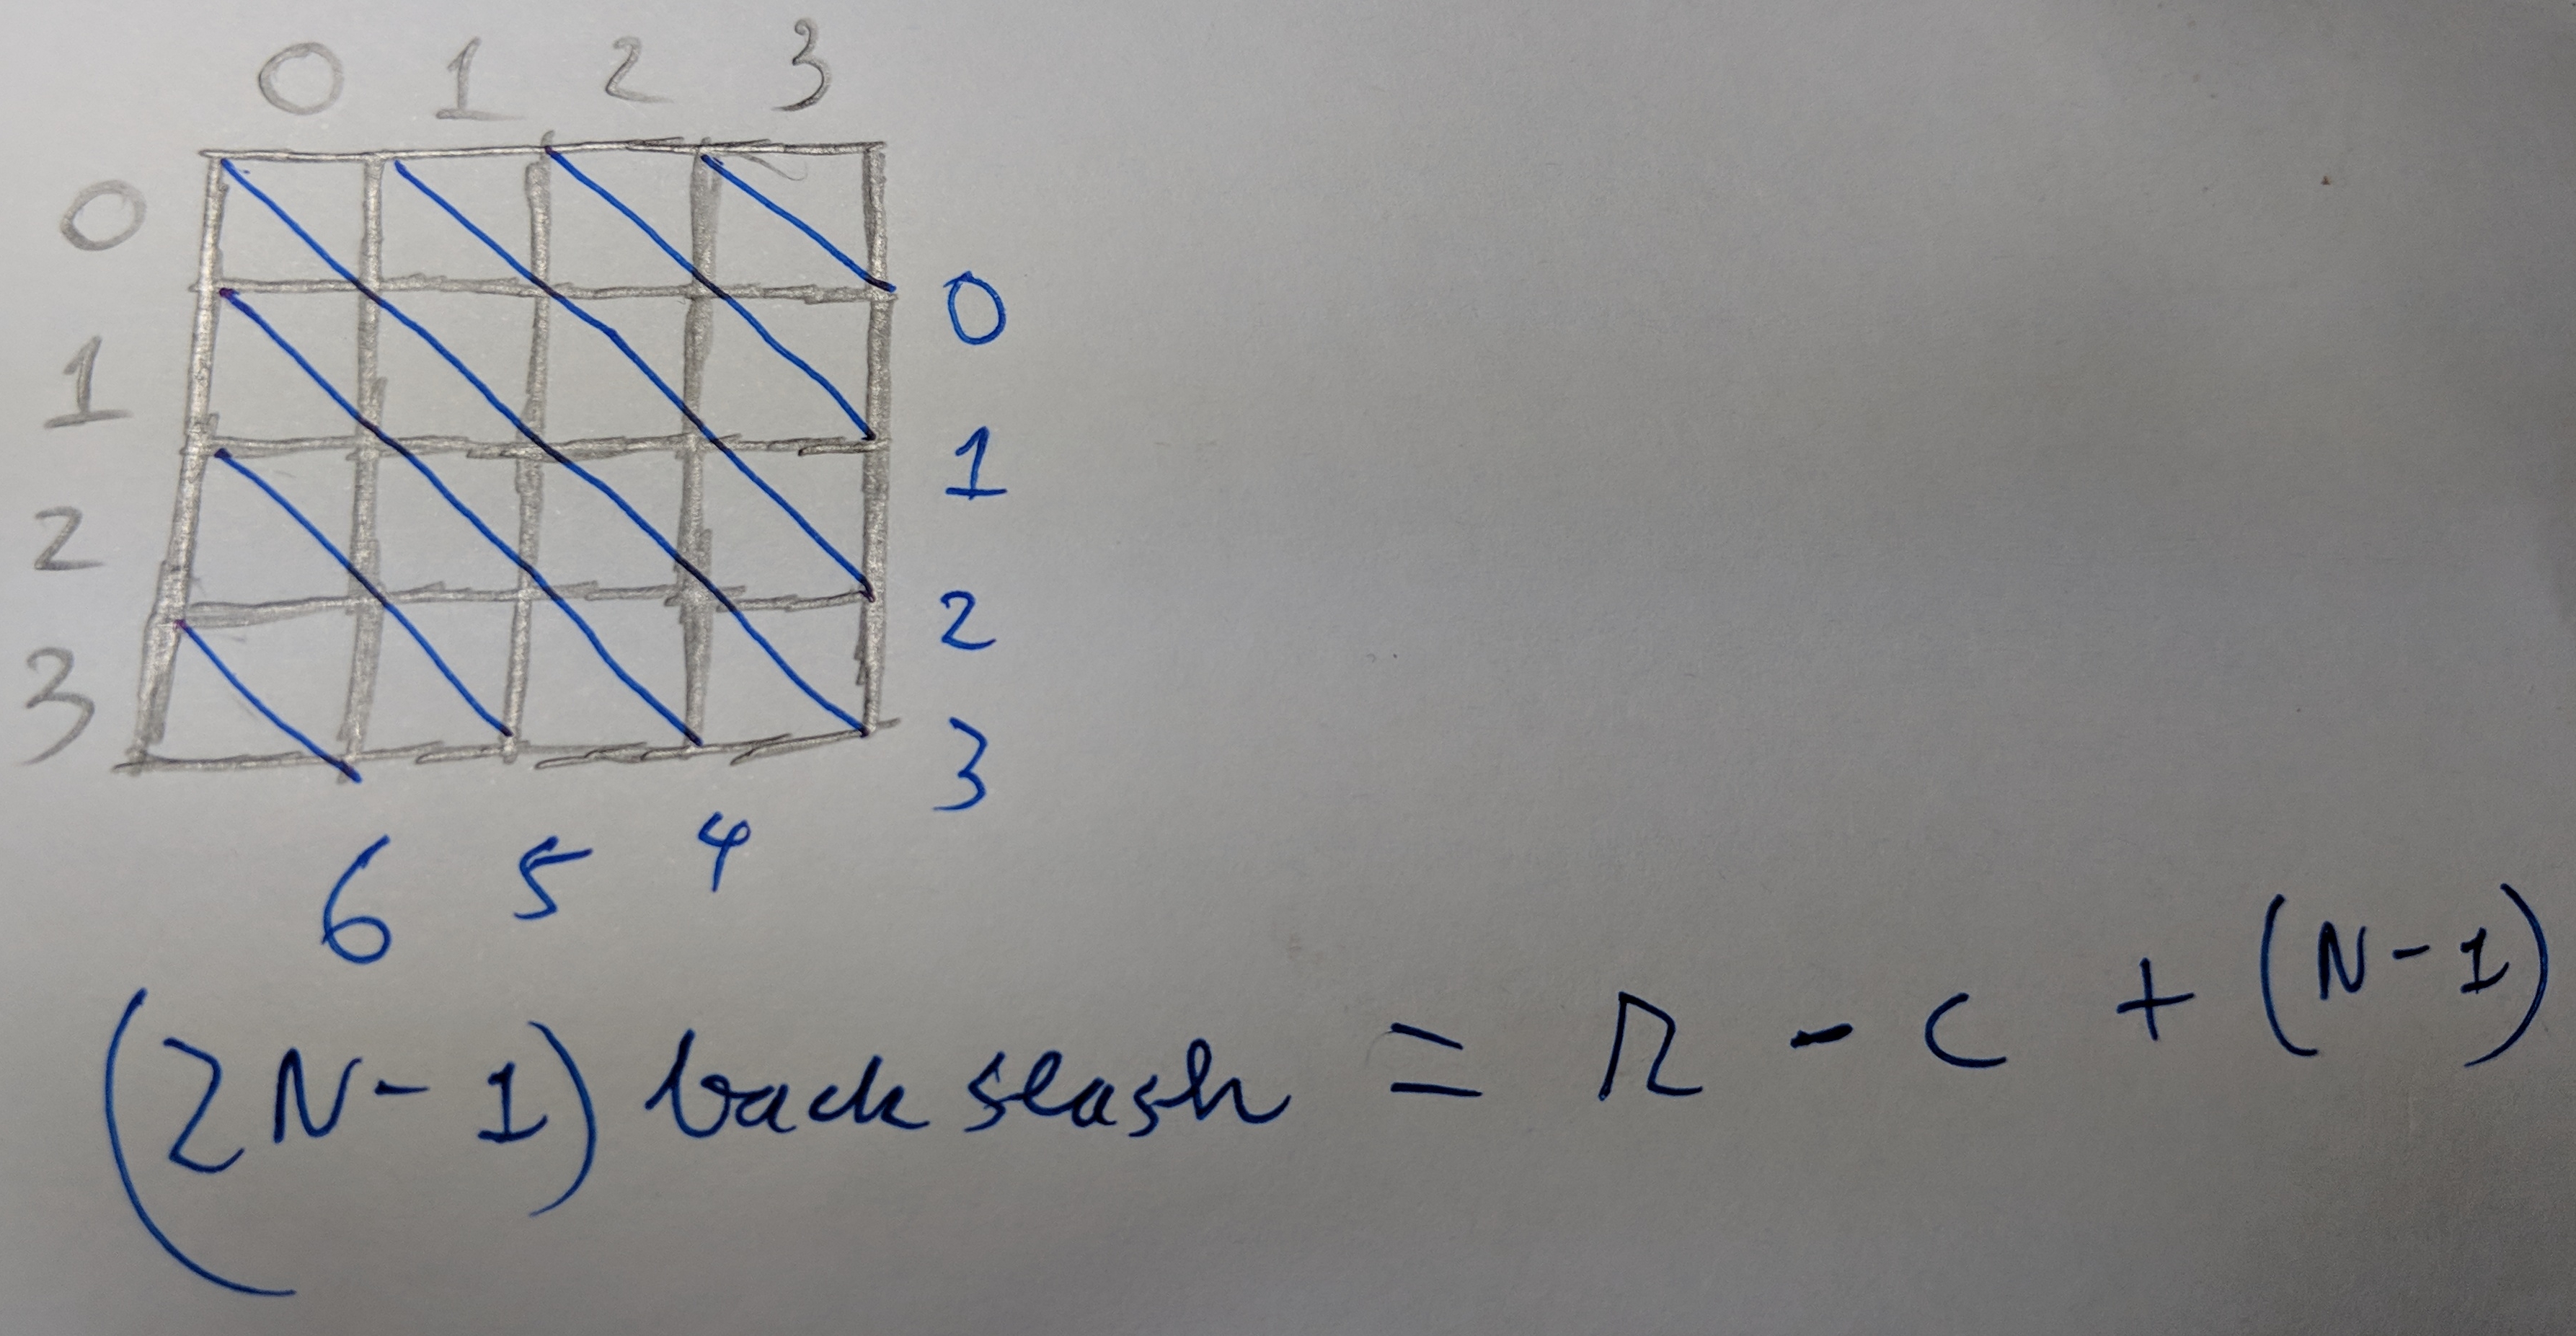 0 1 2 3
0
0
1
1
2
2
3
3
6 5 4
(2N-1) back slash = r - c + (N-1)